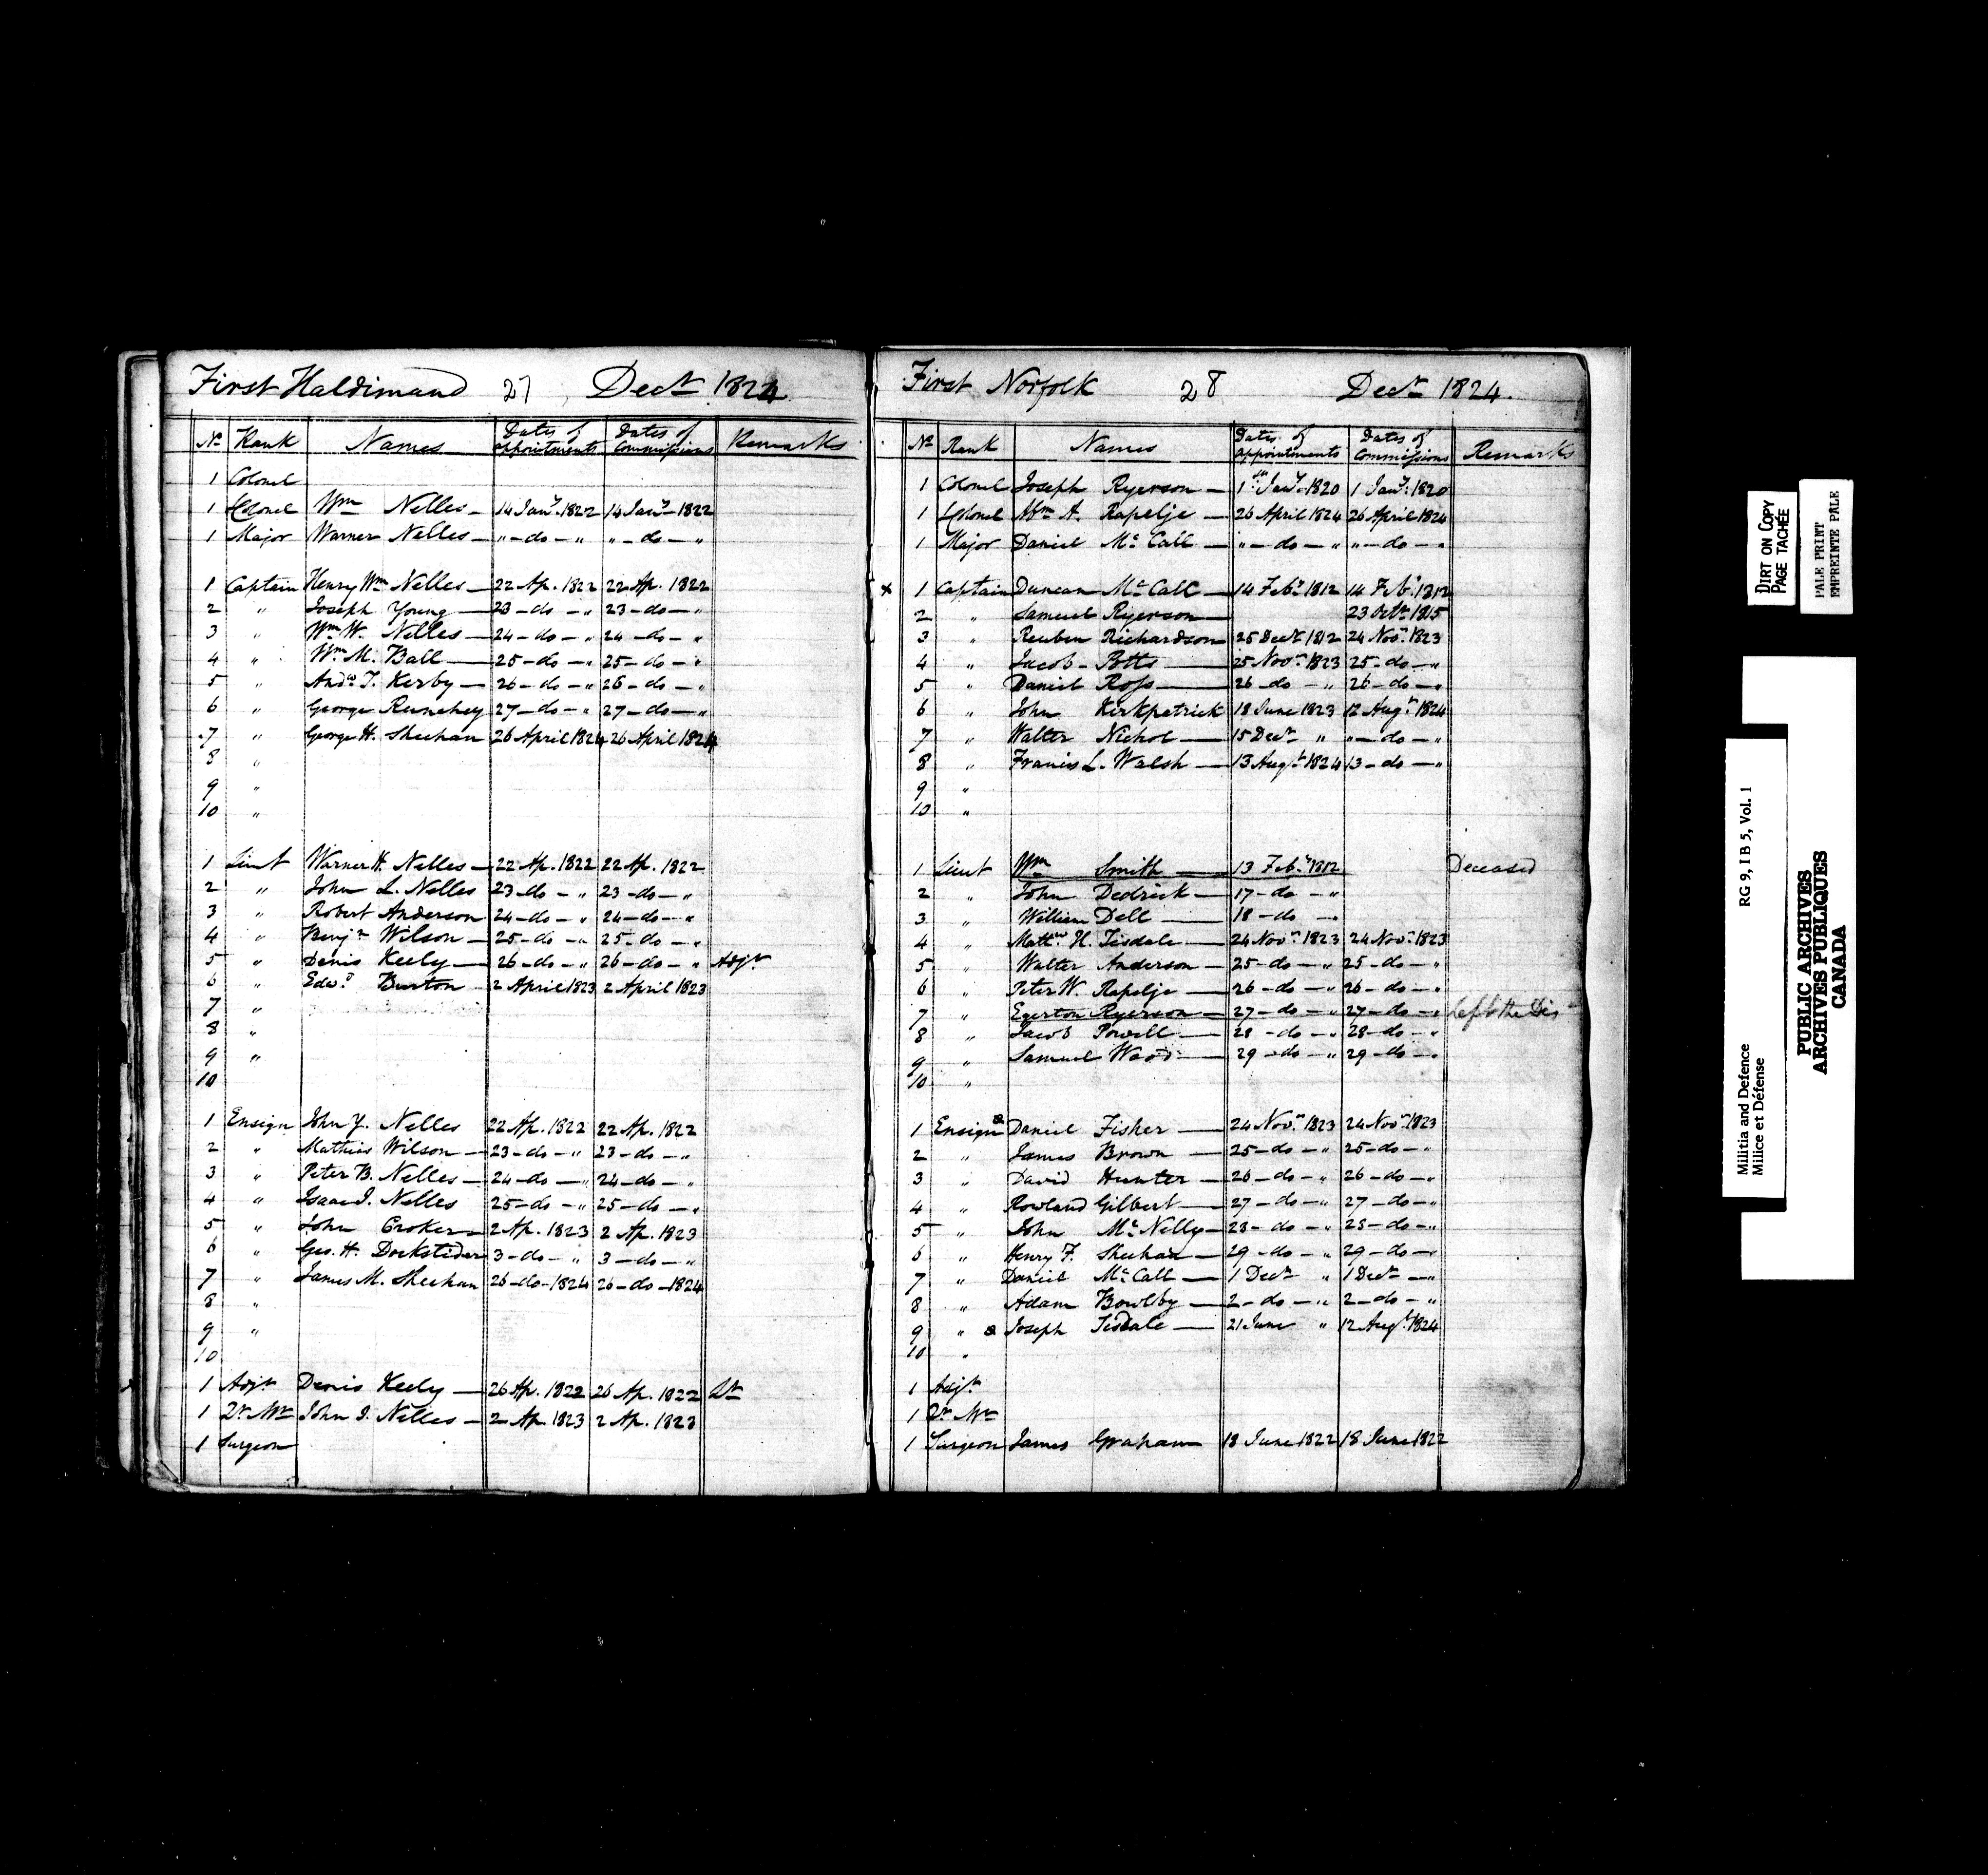 First Haldimand 27 Decr 1824
No Rank Names Dates of appointments Dates of Commissions Remarks
1 Colonel
1 Lt Colonel Wm Nelles — 14 Jany 1822 14 Jany 1822
1 Major Warner Nelles — " — do — " " — do — "
1 Captain Henry Wm Nelles — 22 Ap. 1822 22 Ap. 1822
2 " Joseph Young — 23 — do — " 23 — do — "
3 " Wm W. Nelles — 24 — do — " 24 — do — "
4 " Wm M. Ball — 25 — do — " 25 — do — "
5 " Andw T. Kerby — 26 — do — " 26 — do — "
6 " George Runchey 27 — do — " 27 — do — "
7 " George H. Sheehan 26 April 1824 26 April 1824
8 "
9 "
10 "
1 Lieut Warner H. Nelles — 22 Ap. 1822 22 Ap. 1822
2 " John L. Nelles 23 — do — " 23 — do — "
3 " Robert Anderson 24 — do — " 24 — do — "
4 " Benjn Wilson — 25 — do — " 25 — do — "
5 " Denis Keely — 26 — do — " 26 — do — " Adjt
6 " Edwd Burton — 2 April 1823 2 April 1823
7 "
8 "
9 "
10
1 Ensign John Y. Nelles 22 Ap. 1822 22 Ap. 1822
2 " Mathias Wilson — 23 — do — " 23 — do — "
3 " Peter B. Nelles — 24 — do — " 24 — do — "
4 " Isaac I. Nelles 25 — do — " 25 — do — "
5 " John Croker — 2 Ap. 1823 2 Ap. 1823
6 " Geo. H. Dockstider 3 — do — " 3 — do — "
7 " James M. Sheehan 26 — do — 1824 26 — do — 1824
8 "
9 "
10
1 Adjt Denis Keely — 26 Ap. 1822 26 Ap. 1822 Lt
1 Qr Mr John I. Nelles — 2 Ap. 1823 2 Ap. 1823
1 Surgeon
First Norfolk 28 Decr 1824.
No Rank Names Dates of appointments Dates of Commissions Remarks
1 Colonel Joseph Ryerson — 1st Jany 1820 1 Jany 1820
1 Lt Colonel Abm A. Rapelje — 26 April 1824 26 April 1824
1 Major Daniel McCall — " — do — " " — do — "
x 1 Captain Duncan McCall — 14 Feby 1812 14 Feby 1812
2 " Samuel Ryerson — 23 Octr 1815
3 " Reuben Richardson 25 Decr 1812 24 Novr 1823
4 " Jacob Potts — 25 Novr 1823 25 — do — "
5 " Daniel Ross — 26 — do — " 26 — do — "
6 " John Kirkpatrick 18 June 1823 12 Augt 1824
7 " Walter Nichol — 15 Decr " " — do — "
8 " Francis L. Walsh — 13 Augt 1824 13 — do — "
9 "
10 "
1 Lieut Wm Smith — 13 Feby 1812 Deceased
2 " John Dedrick — 17 — do — "
3 " William Dell — 18 — do — "
4 " Matthw H. Tisdale — 24 Novr 1823 24 Novr 1823
5 " Walter Anderson — 25 — do — " 25 — do — "
6 " Peter W. Rapelje — 26 — do — " 26 — do — "
7 " Egerton Ryerson — 27 — do — " 27 — do — " Left the Dis
8 " Jacob Powell — 28 — do — " 28 — do — "
9 " Samuel Wood — 29 — do — " 29 — do — "
10 "
1 Ensign Daniel Fisher — 24 Novr 1823 24 Novr 1823
2 " James Brown — 25 — do — " 25 — do — "
3 " David Hunter — 26 — do — " 26 — do — "
4 " Rowland Gilbert — 27 — do — " 27 — do — "
5 " John McNelly — 28 — do — " 28 — do — "
6 " Henry F. Sheehan — 29 — do — " 29 — do — "
7 " Daniel McCall — 1 Decr " 1 Decr — "
8 " Adam Bowlby — 2 — do — " 2 — do — "
9 " Joseph Tisdale — 21 June " 12 Augt 1824
10 "
1 Adjt
1 Qr Mr
1 Surgeon James Graham 18 June 1822 18 June 1822
DIRT ON COPY
PAGE TACHÉE
PALE PRINT
EMPREINTE PALE
RG 9, I B 5, Vol. 1
Militia and Defence
Milice et Défense
PUBLIC ARCHIVES
ARCHIVES PUBLIQUES
CANADA